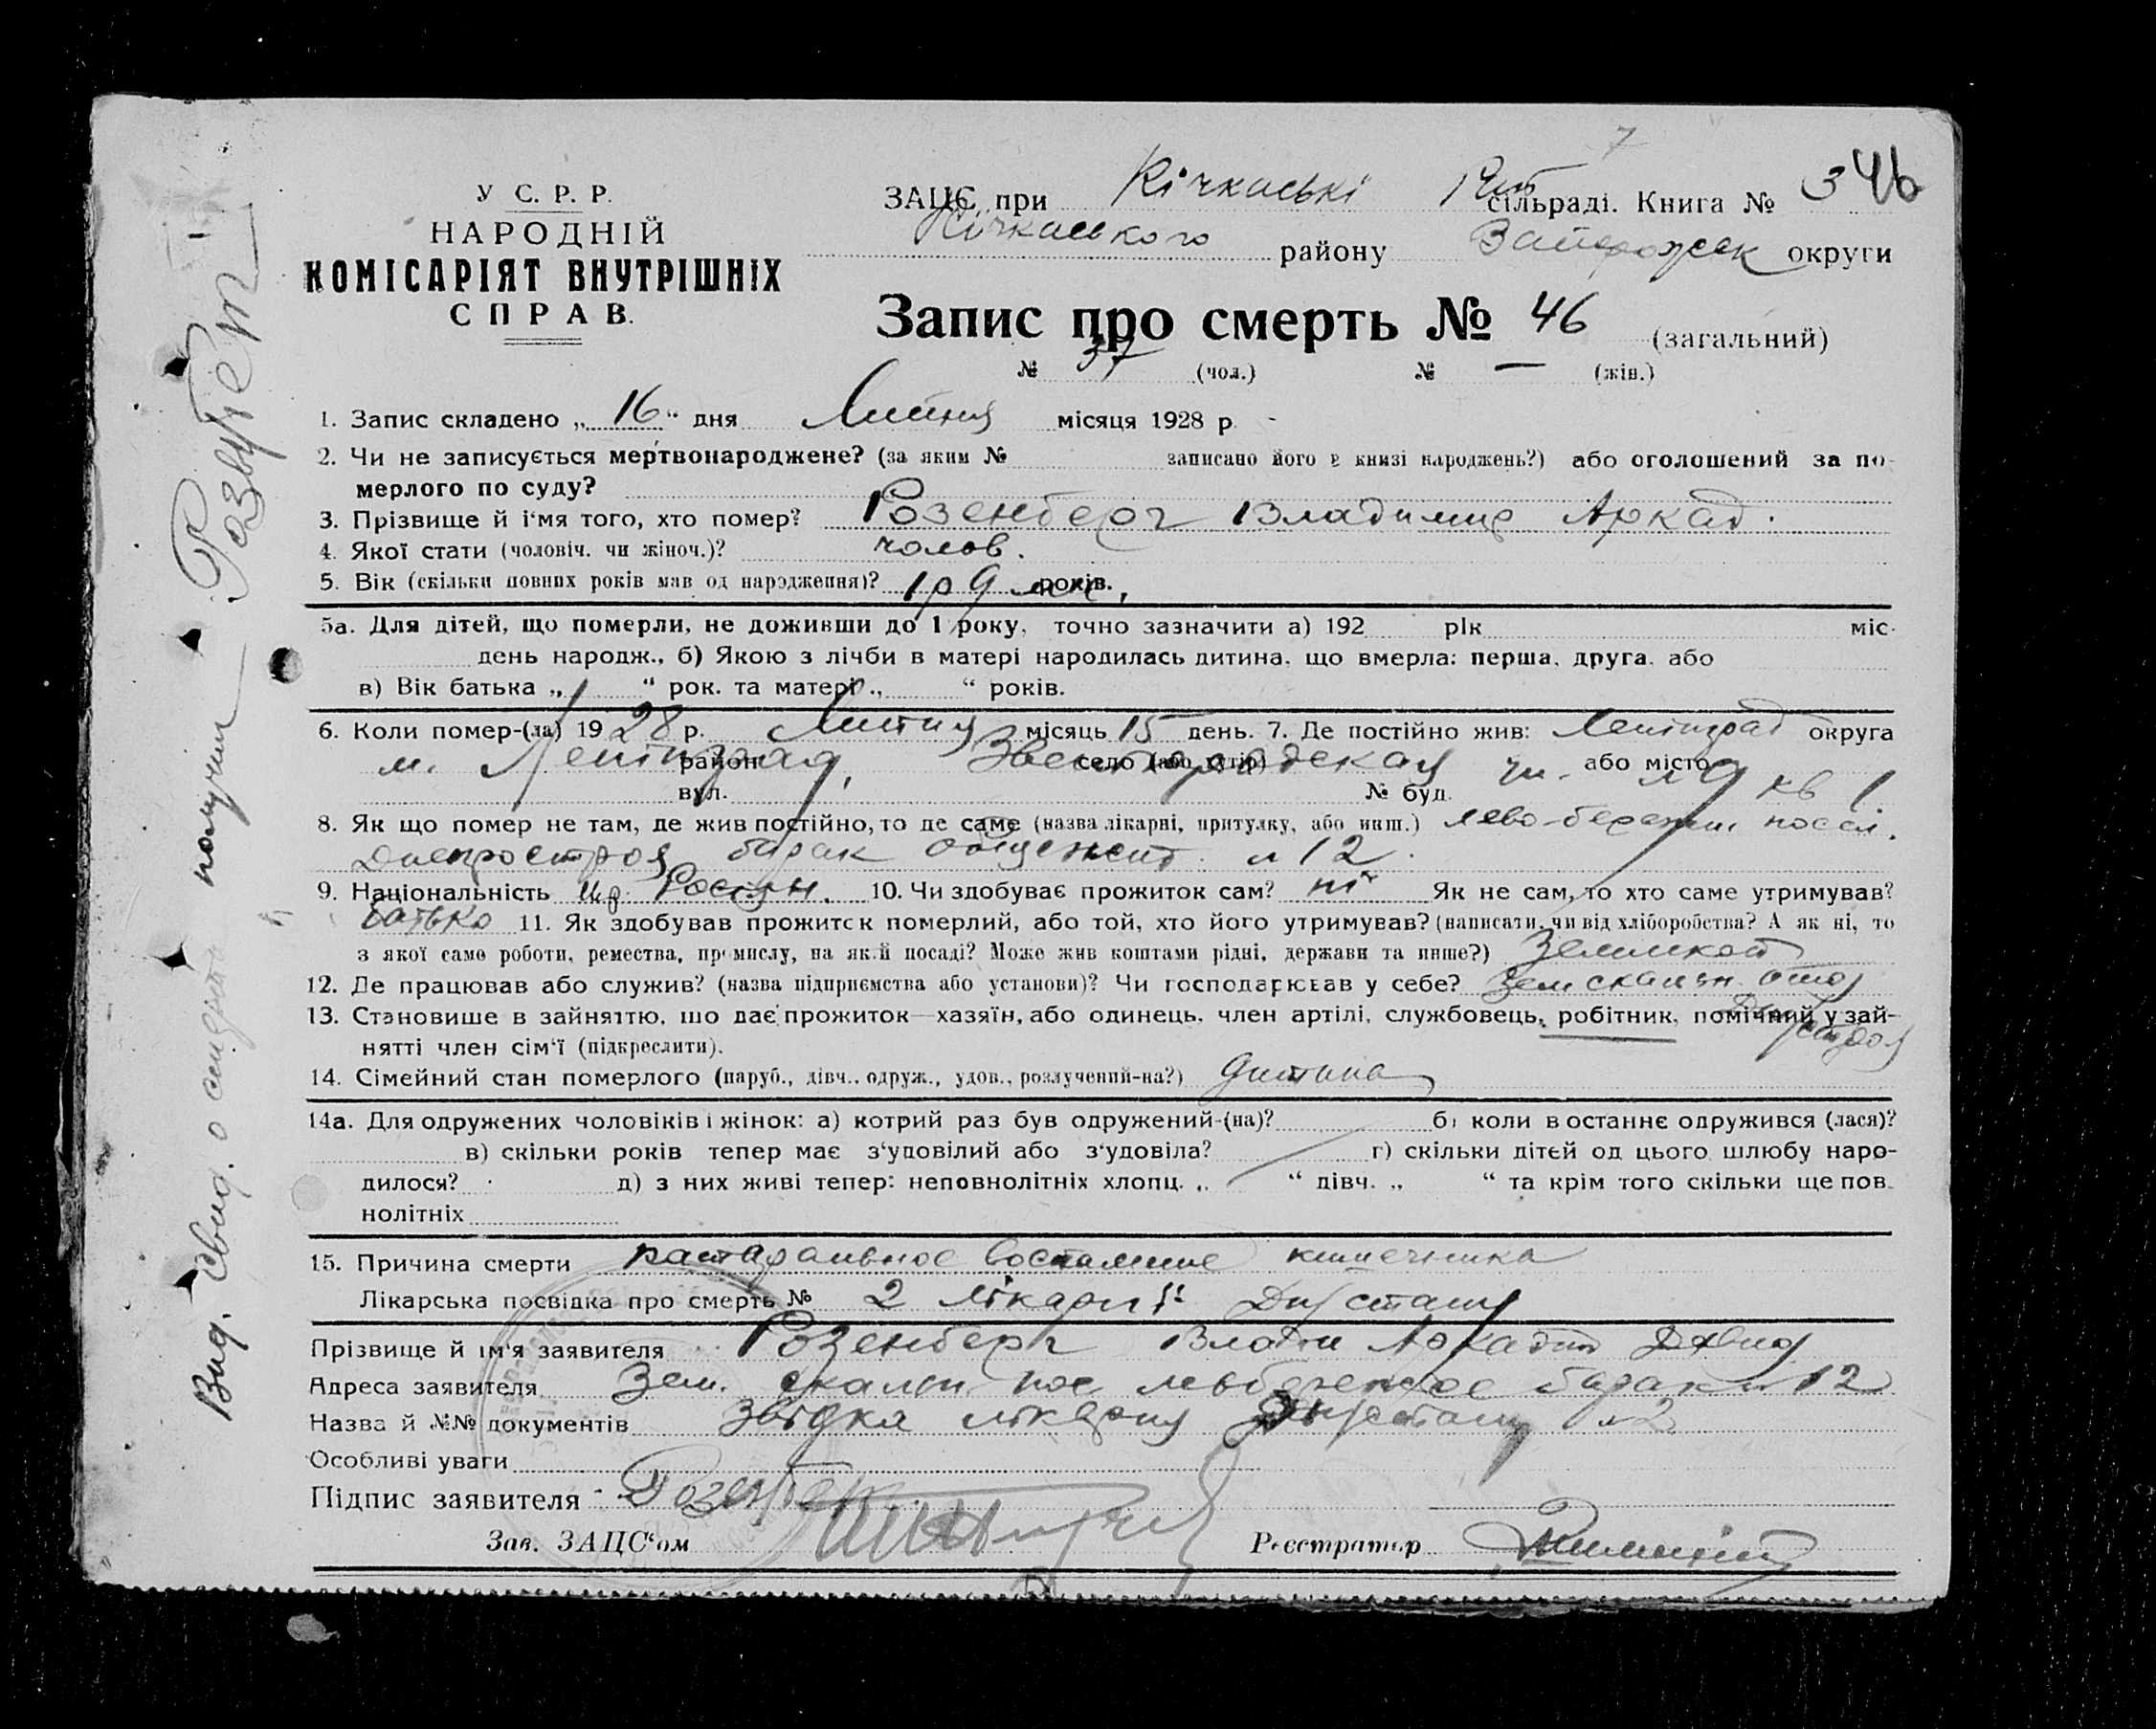 7
У С. Р. Р.
НАРОДНІЙ
КОМІСАРІЯТ ВНУТРІШНІХ
СПРАВ.
ЗАЦС при Кічкаські сільраді. Книга № 3 46
Кічкаського району Запорожск округи
Запис про смерть № 46 (загальний)
№ 37 (чол.) № — (жін.)
1. Запис складено „ 16 “ дня Липня місяця 1928 р.
2. Чи не записується мертвонароджене? (за яким № записано його в книзі народжень?) або оголошений за по-
мерлого по суду?
3. Прізвище й і‘мя того, хто помер? Розенберг Владимир Аркад.
4. Якої стати (чоловіч. чи жіноч.)? чолов.
5. Вік (скільки повних років мав од народження)? 1 р 9 мес, років.
5а. Для дітей, що померли, не доживши до 1 року, точно зазначити а) 192 рік міс.
день народж., б) Якою з лічби в матері народилась дитина, що вмерла: перша, друга, або
в) Вік батька „ “ рок. та матері „ “ років.
6. Коли помер-(ла) 19 28 р. Липня місяць 15 день. 7. Де постійно жив: Ленінград округа
м. Ленінград, район село (або хутір) Звенигородская ул. або місто № 9 кв 1.
вул. № буд.
8. Як що помер не там, де жив постійно, то де саме (назва лікарні, притулку, або инш.) лево-бережн. посел.
Днепростроя барак общежит. № 12.
9. Національність 10. Чи здобуває прожиток сам? ні Як не сам, то хто саме утримував?
батько 11. Як здобував прожиток померлий, або той, хто його утримував? (написати, чи від хліборобства? А як ні, то
з якої саме роботи, ремества, промислу, на якій посаді? Може жив коштами рідні, держави та инше?) Землекоп
12. Де працював або служив? (назва підприємства або установи)? Чи господарював у себе? Зем скальн. отд
Днепростроя
13. Становише в зайняттю, що дає прожиток—хазяїн, або одинець, член артілі, службовець, робітник, помічний у зай-
нятті член сім‘ї (підкреслити).
14. Сімейний стан померлого (паруб., дівч., одруж., удов., розлучений-на?) дитина
14а. Для одружених чоловіків і жінок: а) котрий раз був одружений-(на)? б) коли в останнє одружився (лася)?
в) скільки років тепер має з‘удовілий або з‘удовіла? г) скільки дітей од цього шлюбу наро-
дилося? д) з них живі тепер: неповнолітніх хлопц. „ “ дівч. „ “ та крім того скільки ще пов-
нолітніх
15. Причина смерти катаральное воспаление кишечника
Лікарська посвідка про смерть № 2 лікарні
Прізвище й ім‘я заявителя Розенберг
Адреса заявителя Зем. скальн. пос левобережное барак № 12
Назва й №№ документів Звідка лікарні № 2
Особливі уваги
Підпис заявителя Розенберг
Зав. ЗАЦС‘ом Реєстратор
Вид. Свид. о смерти получил Розенберг